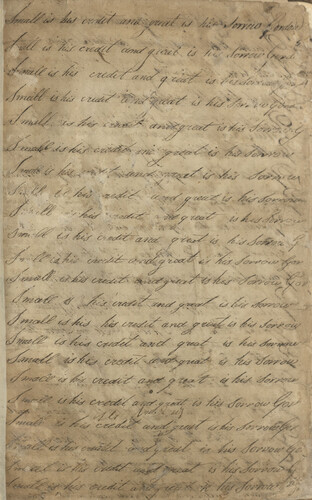 Small is his credit and great is his Sorrow
Small is his credit and great is his Sorrow
Small is his credit and great is his Sorrow
Small is his credit and great is his Sorrow
Small is his credit and great is his Sorrow G
Small is his credit and great is his Sorrow
is his and great is his Sorrow
Small is his credit and great is his Sorrow
Small is his credit and great is his Sorrow
Small is his credit and great is his Sorrow G
Small is his credit and great is his Sorrow Gos
Small is his credit and great is his Sorrow Gos
Small is his credit and great is his Sorrow
Small is his his credit and great is his Sorrow
Small is his credit and great is his Sorrow
Small is his credit and great is his Sorrow
Small is his credit and great is his Sorrow
Small is his credit and great is his Sorrow Gos
Small is his credit and great is his Sorrow Gos
Small is his credit and great is his Sorrow Go
Small is his credit and great is his Sorrow G
Small is his credit and great is his Sorrow